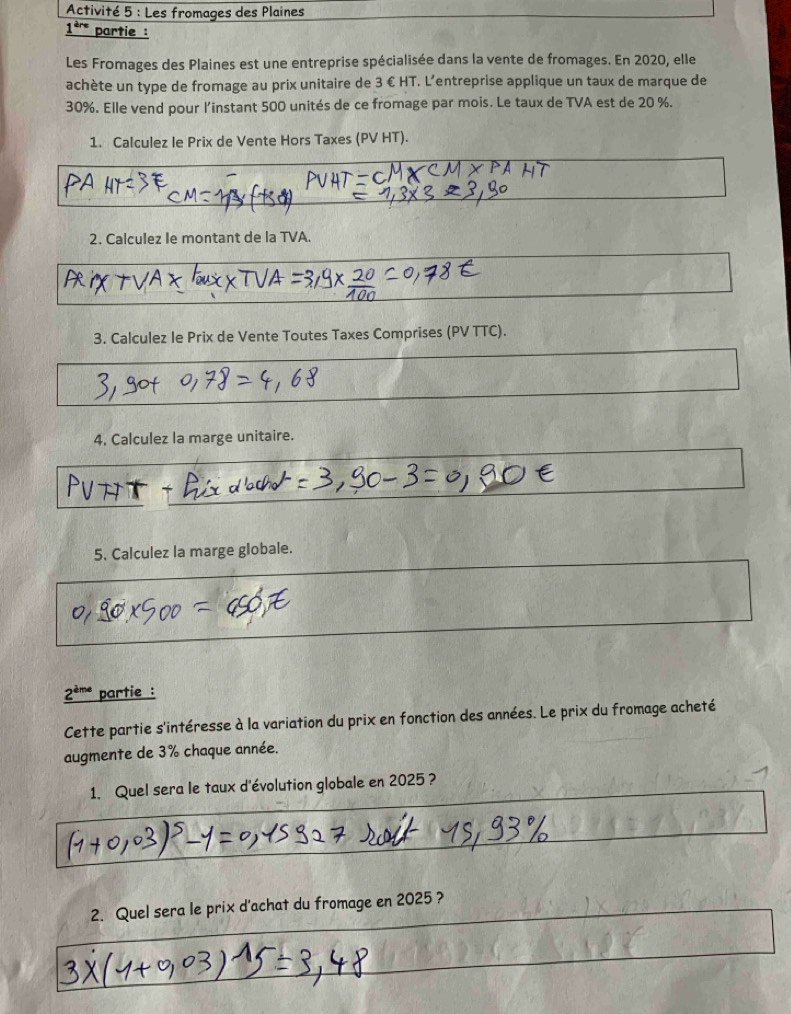 Activité 5 : Les fromages des Plaines
1ère partie :
Les Fromages des Plaines est une entreprise spécialisée dans la vente de fromages. En 2020, elle
achète un type de fromage au prix unitaire de 3 € HT. L'entreprise applique un taux de marque de
30%. Elle vend pour l'instant 500 unités de ce fromage par mois. Le taux de TVA est de 20 %.
1. Calculez le Prix de Vente Hors Taxes (PV HT).
PA HT=3€ CM= PVHT=CM×CM×PA HT
= 1,3×3 = 3,90
2. Calculez le montant de la TVA.
PRIX TVA × taux × TVA = 3,9 × 20/100 = 0,78 €
3. Calculez le Prix de Vente Toutes Taxes Comprises (PV TTC).
3,90+ 0,78 = 4,68
4. Calculez la marge unitaire.
PVHT - Prix d'achat = 3,90-3=0,90 €
5. Calculez la marge globale.
0,90×500 = 450,€
2ème partie :
Cette partie s'intéresse à la variation du prix en fonction des années. Le prix du fromage acheté
augmente de 3% chaque année.
1. Quel sera le taux d'évolution globale en 2025 ?
(1+0,03)^5-1=0,15927 soit 15,93%
2. Quel sera le prix d'achat du fromage en 2025 ?
3×(1+0,03)^5=3,48